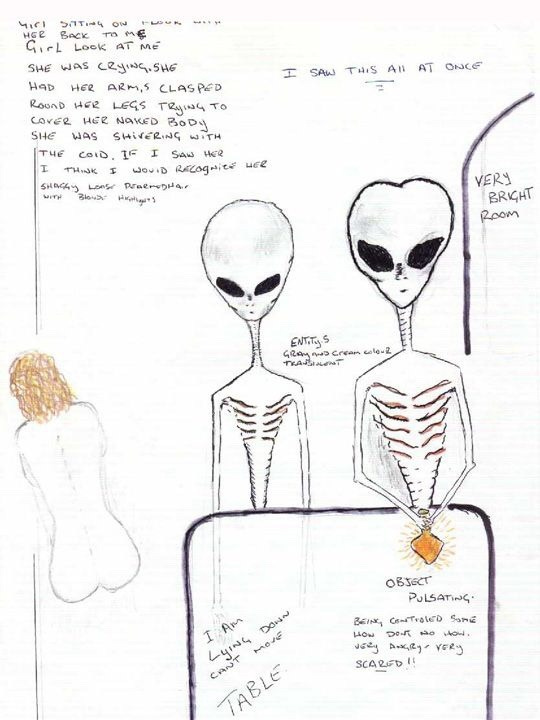 GIRL SITTING ON FLOOR WITH
HER BACK TO ME
GIRL LOOK AT ME
SHE WAS CRYING. SHE
HAD HER ARM,S CLASPED
ROUND HER LEGS TRYING TO
COVER HER NAKED BODY
SHE WAS SHIVERING WITH
THE COLD. IF I SAW HER
I THINK I WOULD RECOGNIZE HER
SHAGGY LOOSE
WITH BLONDE HIGHLIGHTS
I SAW THIS All AT ONCE
VERY
BRIGHT
ROOM
ENTITYS
GRAY AND CREAM COLOUR
TRANSLUCENT
OBJECT
PULSATING.
BEING CONTROLED SOME
HOW DONT NO HOW.
VERY ANGRY - VERY
SCARED !!
I AM
LYING DOWN
CANT MOVE
TABLE.